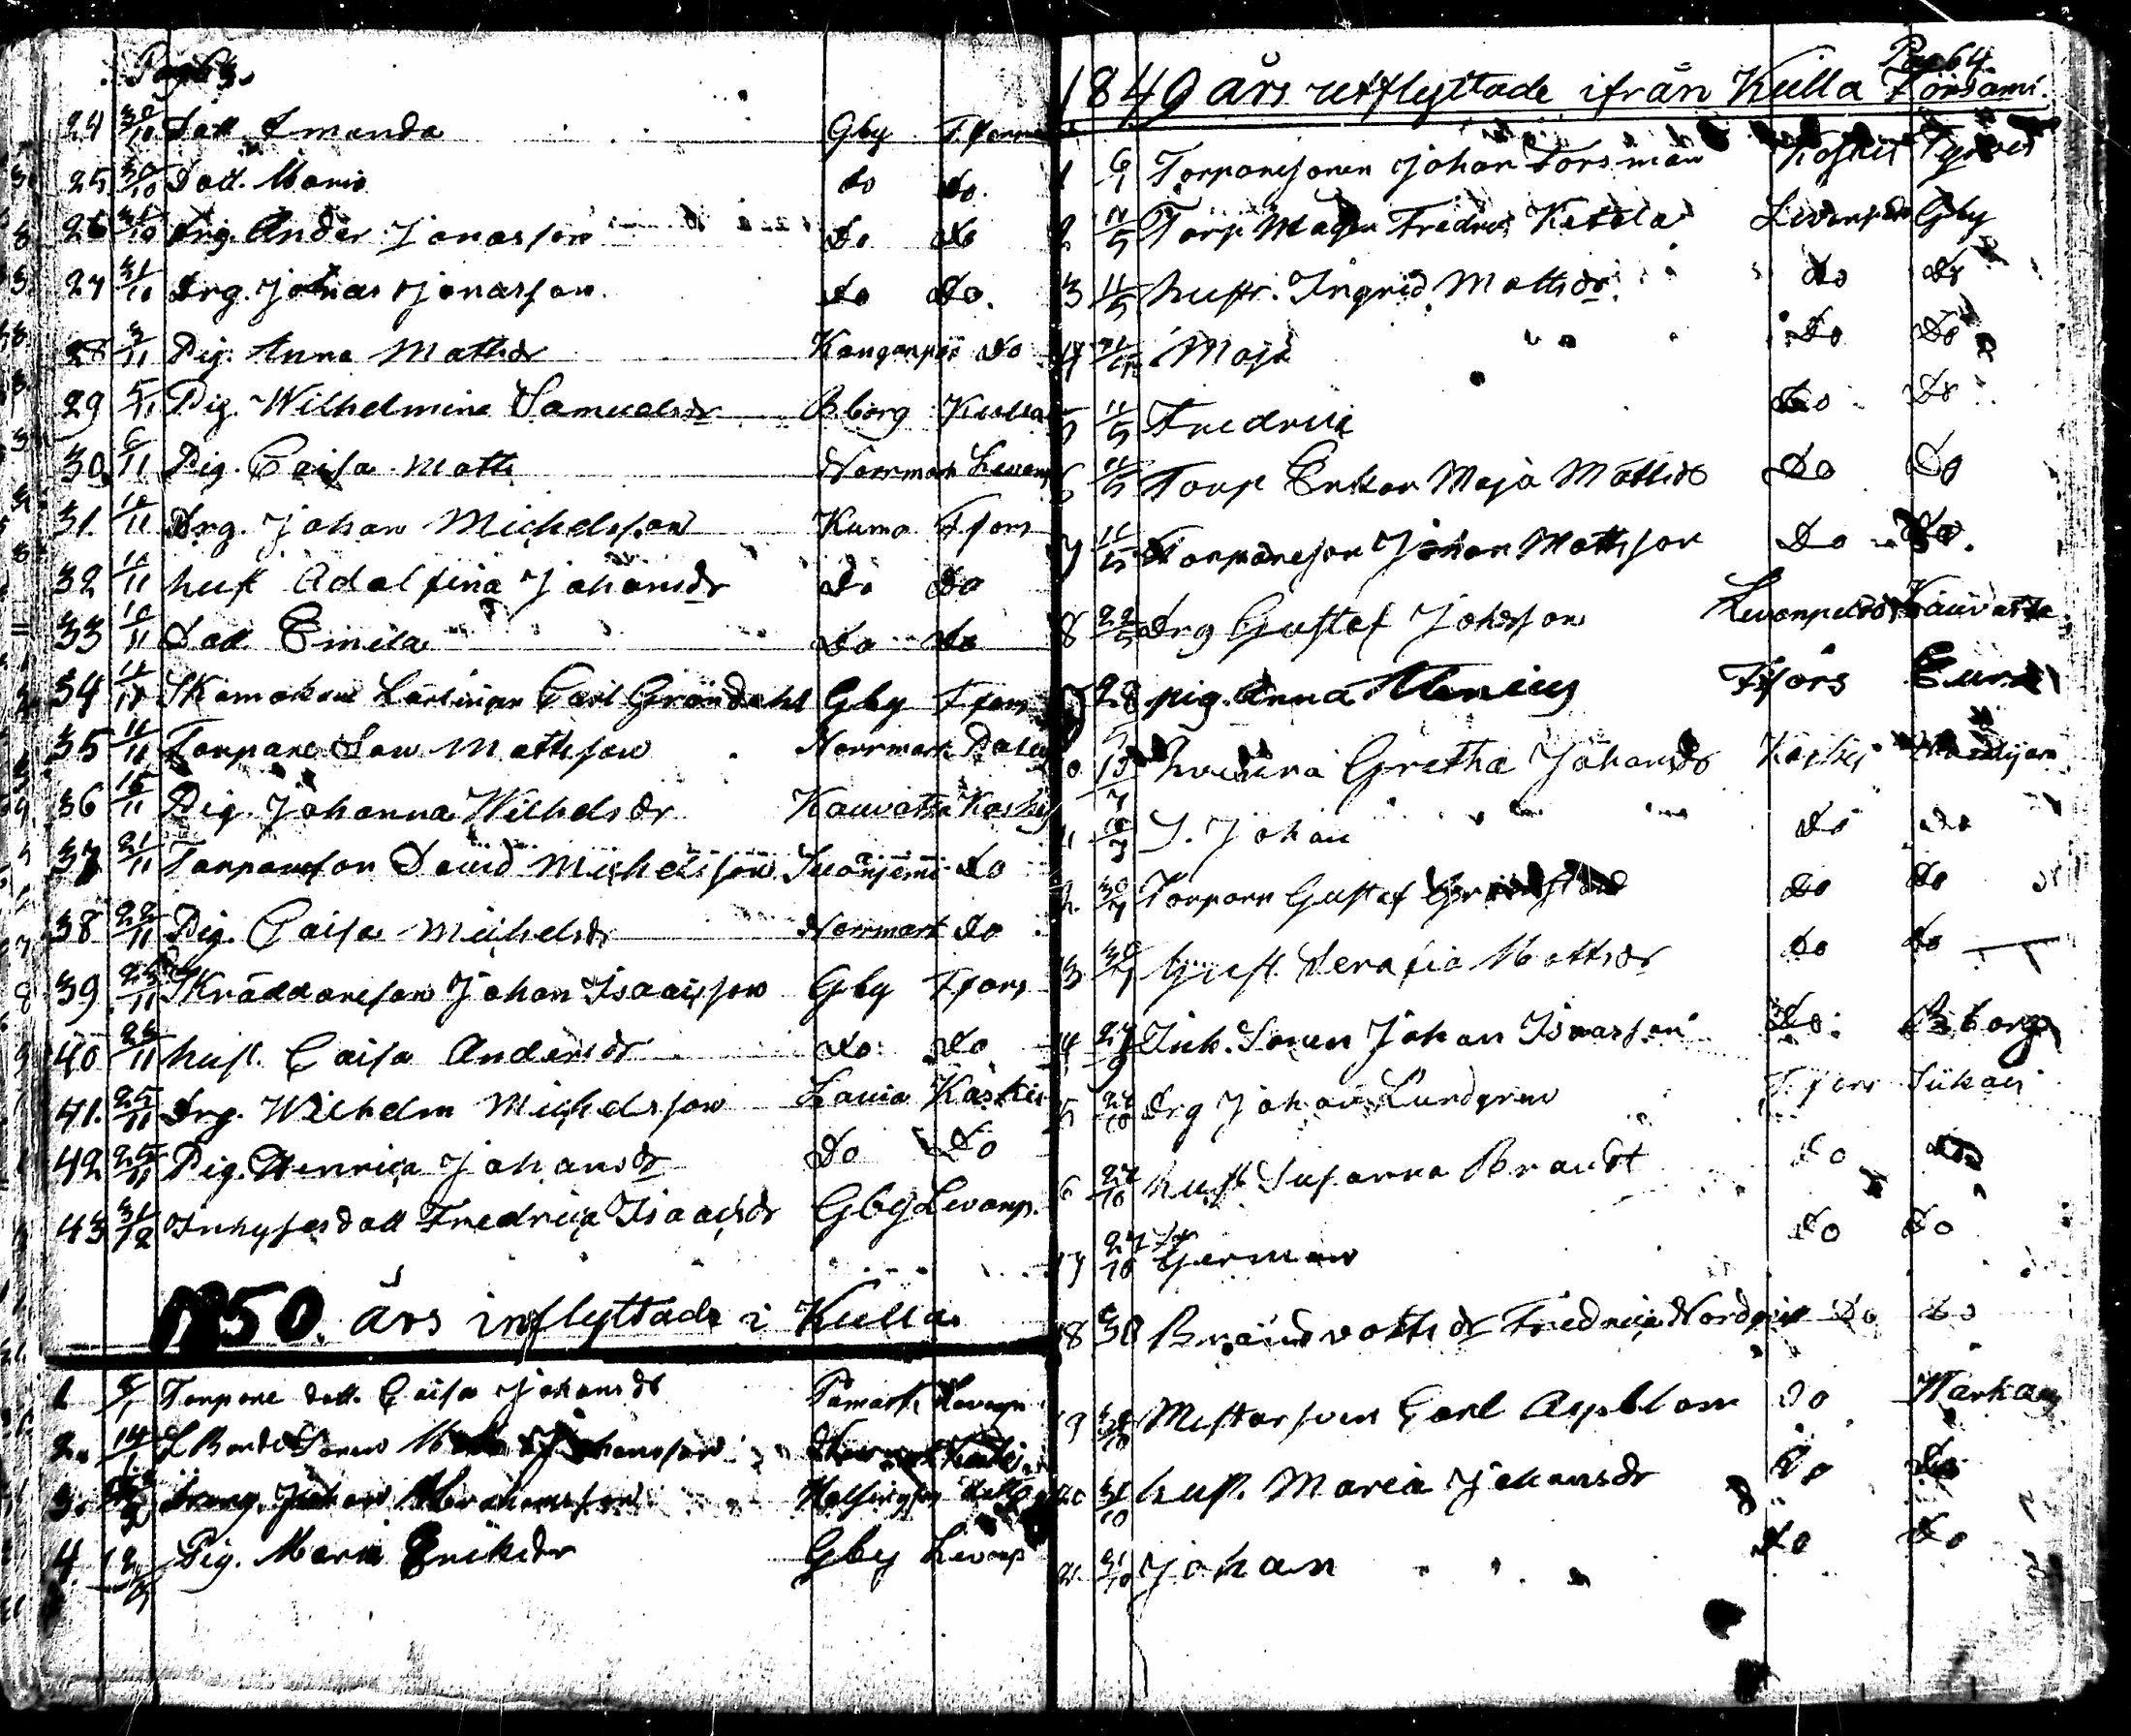 Pag 63.
24 30/10 Dott. Amanda Gby F.fors
25 30/10 Dott. Maria do do.
26 31/10 Drg. Ander Jonasson do do
27 31/10 Drg. Johas Jonasson do do.
28 3/11 Pig. Anna Mattsdr Kangonpää do
29 5/11 Pig. Wilhelmina Samuelsdr B.borg Kulla
30 6/11 Pig. Caisa Matts Norrmark Levanp
31. 10/11 Drg. Johan Michelsson Kumo Ffors
32 10/11 hust Adolfina Johansdr do do
33 10/11 Dott. Emila do do
34 Skomakare Lärlingen Carl Gröndahl Gby Ffors
35 11/11 Torpare Son Mattsson Norrmark
36 16/11 Pig. Johanna Wilhelsdr Kauvatsa Koskis
37 21/11 Torpareson David Michelsson Suoniemi do
38 22/11 Pig. Caisa Michelsdr Norrmark do
39 Skräddareson Johan Isaacsson Gby Ffors
40 hust. Caisa Andersdr do do
41. 25/11 Drg. Wilhelm Michelsson Lavia Koskis
42 25/11 Pig. Henrica Johansdr do do
43 31/12 Inhyses dott Fredrica Isaacsdr Gby Levanp.
1850. års inflyttade i Kulla
1 Torpare dott. Caisa Johansdr Påmark Levanp
2. 14/1
3. Abrahamsson
4 Pig. Maria Eriksdr Gby Levanp
Pag 64
1849 års utflyttade ifrån Kulla Församl.
1 6/1 Torparesonen Johan Forsman Koskis Tyrvis
2 11/5 Torp Mågen Fredric Ketola Levanpelto Gby
3 11/5 hustr. Ingrid Mattsdr do do
4 Maja do do
5 11/5 Fredrik do do
6 11/5 Torp Enkan Maja Mattsdr do do
7 11/5 Torpareson Johan Mattsson do do.
8 22/5 Drg Gustaf Johsson Levanpelto Kauvatsa
9 28 pig. Anna Alenius Ffors Eura
10 Gretha Johansdr Koskis
11 S. Johan do do
12 30/7 Torparn Gustaf do do
13 30/7 hust. Serafia Mattsdr do do
14 27/9 Inh. Sonen Johan Isaacsson do. B.borg
15 27/10 Drg Johan Lundgren F.fors Siikais
16 27/10 hust Susanna Brandt do do
17 27/10 German do do
18 30 Brandvakts dr Fredrica Nordqvist do do
19 Mästarsven Carl Aspblom do Karkau
20 31/10 hust. Maria Johansdr do do
21. 31/10 Johan do do